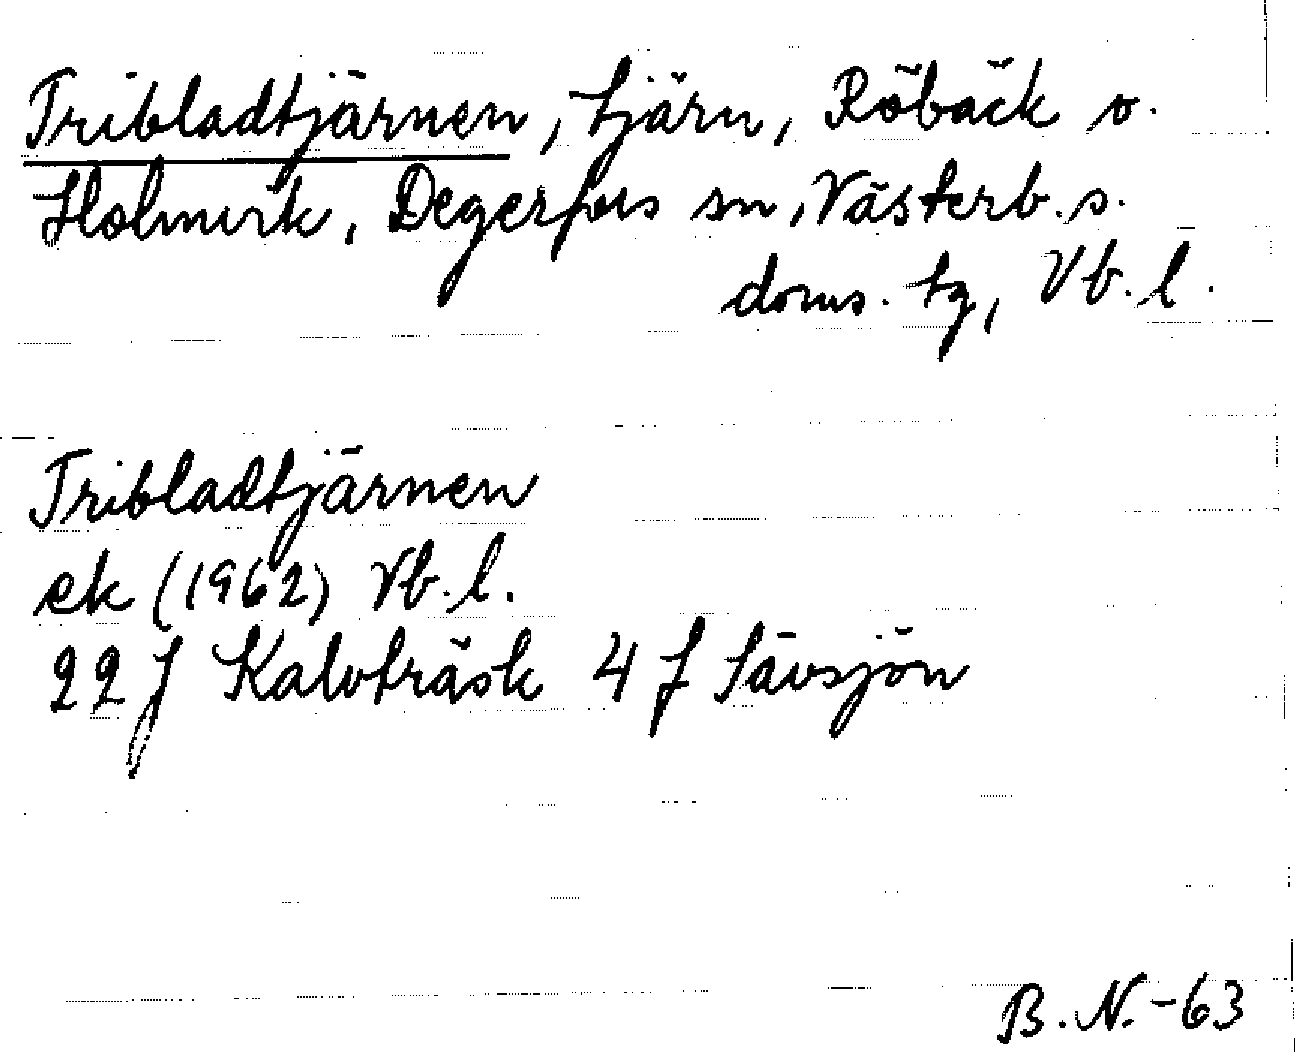 Tribladtjärnen, tjärn, Röbäck o.
Holmvik, Degerfors sn, Västerb. s.
doms. tg, Vb. l.
Tribladtjärnen
ek (1962) Vb. l.
22 J Kalvträsk 4 f Sävsjön
B. N. -63